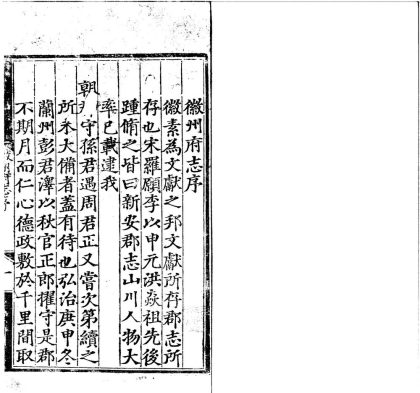 徽州府志序
徽素為文獻之邦文獻所存郡志所
存也宋羅願李以申元洪焱祖先後
踵脩之皆曰新安郡志山川人物大
率已載逮我
朝 守孫君遇周君正又嘗次第續之
所未大備者蓋有待也弘治庚申冬
蘭州彭君澤以秋官正郎擢守是郡
不期月而仁心德政敷於千里間取